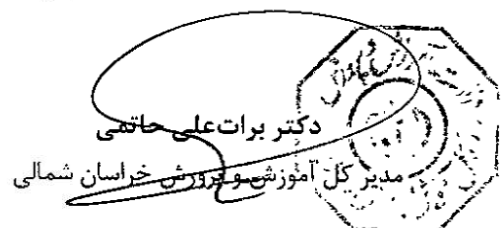 دکتر برات‌علی حاتمی
مدیر کل آموزش و پرورش خراسان شمالی